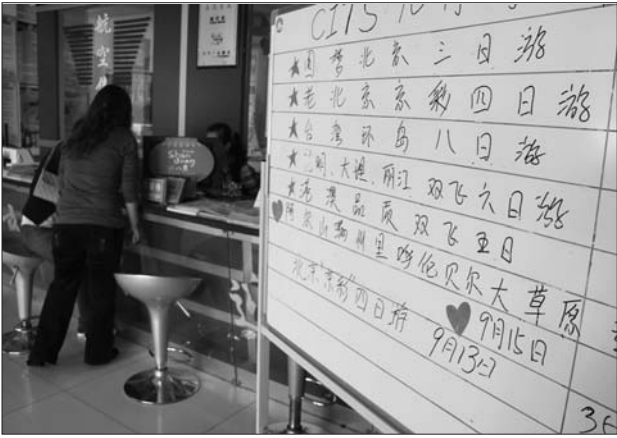 航空
CITS
★圆梦北京三日游
★老北京京彩四日游
★台湾环岛八日游
★昆明、大理、丽江双飞六日游
★港澳品质双飞五日
阿尔山满州里呼伦贝尔大草原
北京"京彩"四日游
9月15日
9月13日